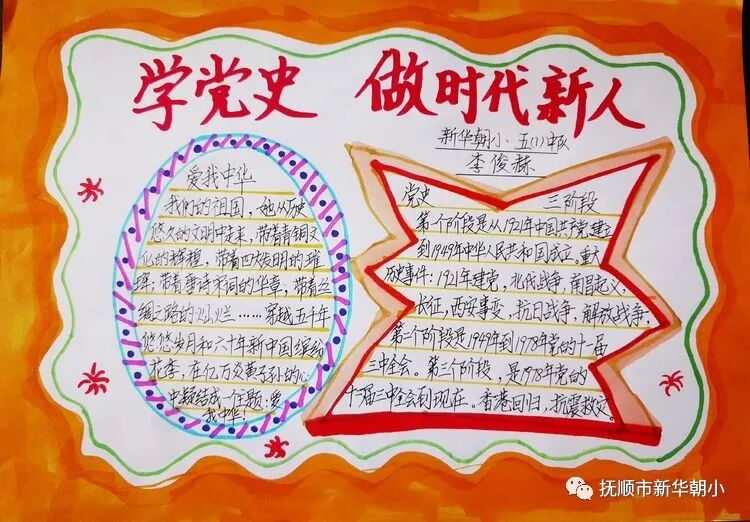 学党史 做时代新人
新华朝小 五(1)中队
李俊赫
爱我中华
我们的祖国，她从历史
悠久的文明中走来，带着青铜文
化的辉煌，带着四大发明的璀
璨，带着唐诗宋词的华章，带着丝
绸之路的灿烂……穿越五千年
悠悠岁月和六十年新中国缤纷
花季，在亿万炎黄子孙的心
中凝结成一个主题：爱
我中华！
党史 三阶段
第一个阶段是从1921年中国共产党建立
到1949年中华人民共和国成立，重大
历史事件：1921年建党，北伐战争，南昌起义，
长征，西安事变，抗日战争，解放战争，
第二个阶段是1949年到1978年党的十一届
三中全会。第三个阶段，是1978年党的
十一届三中全会到现在。香港回归，抗震救灾。
抚顺市新华朝小